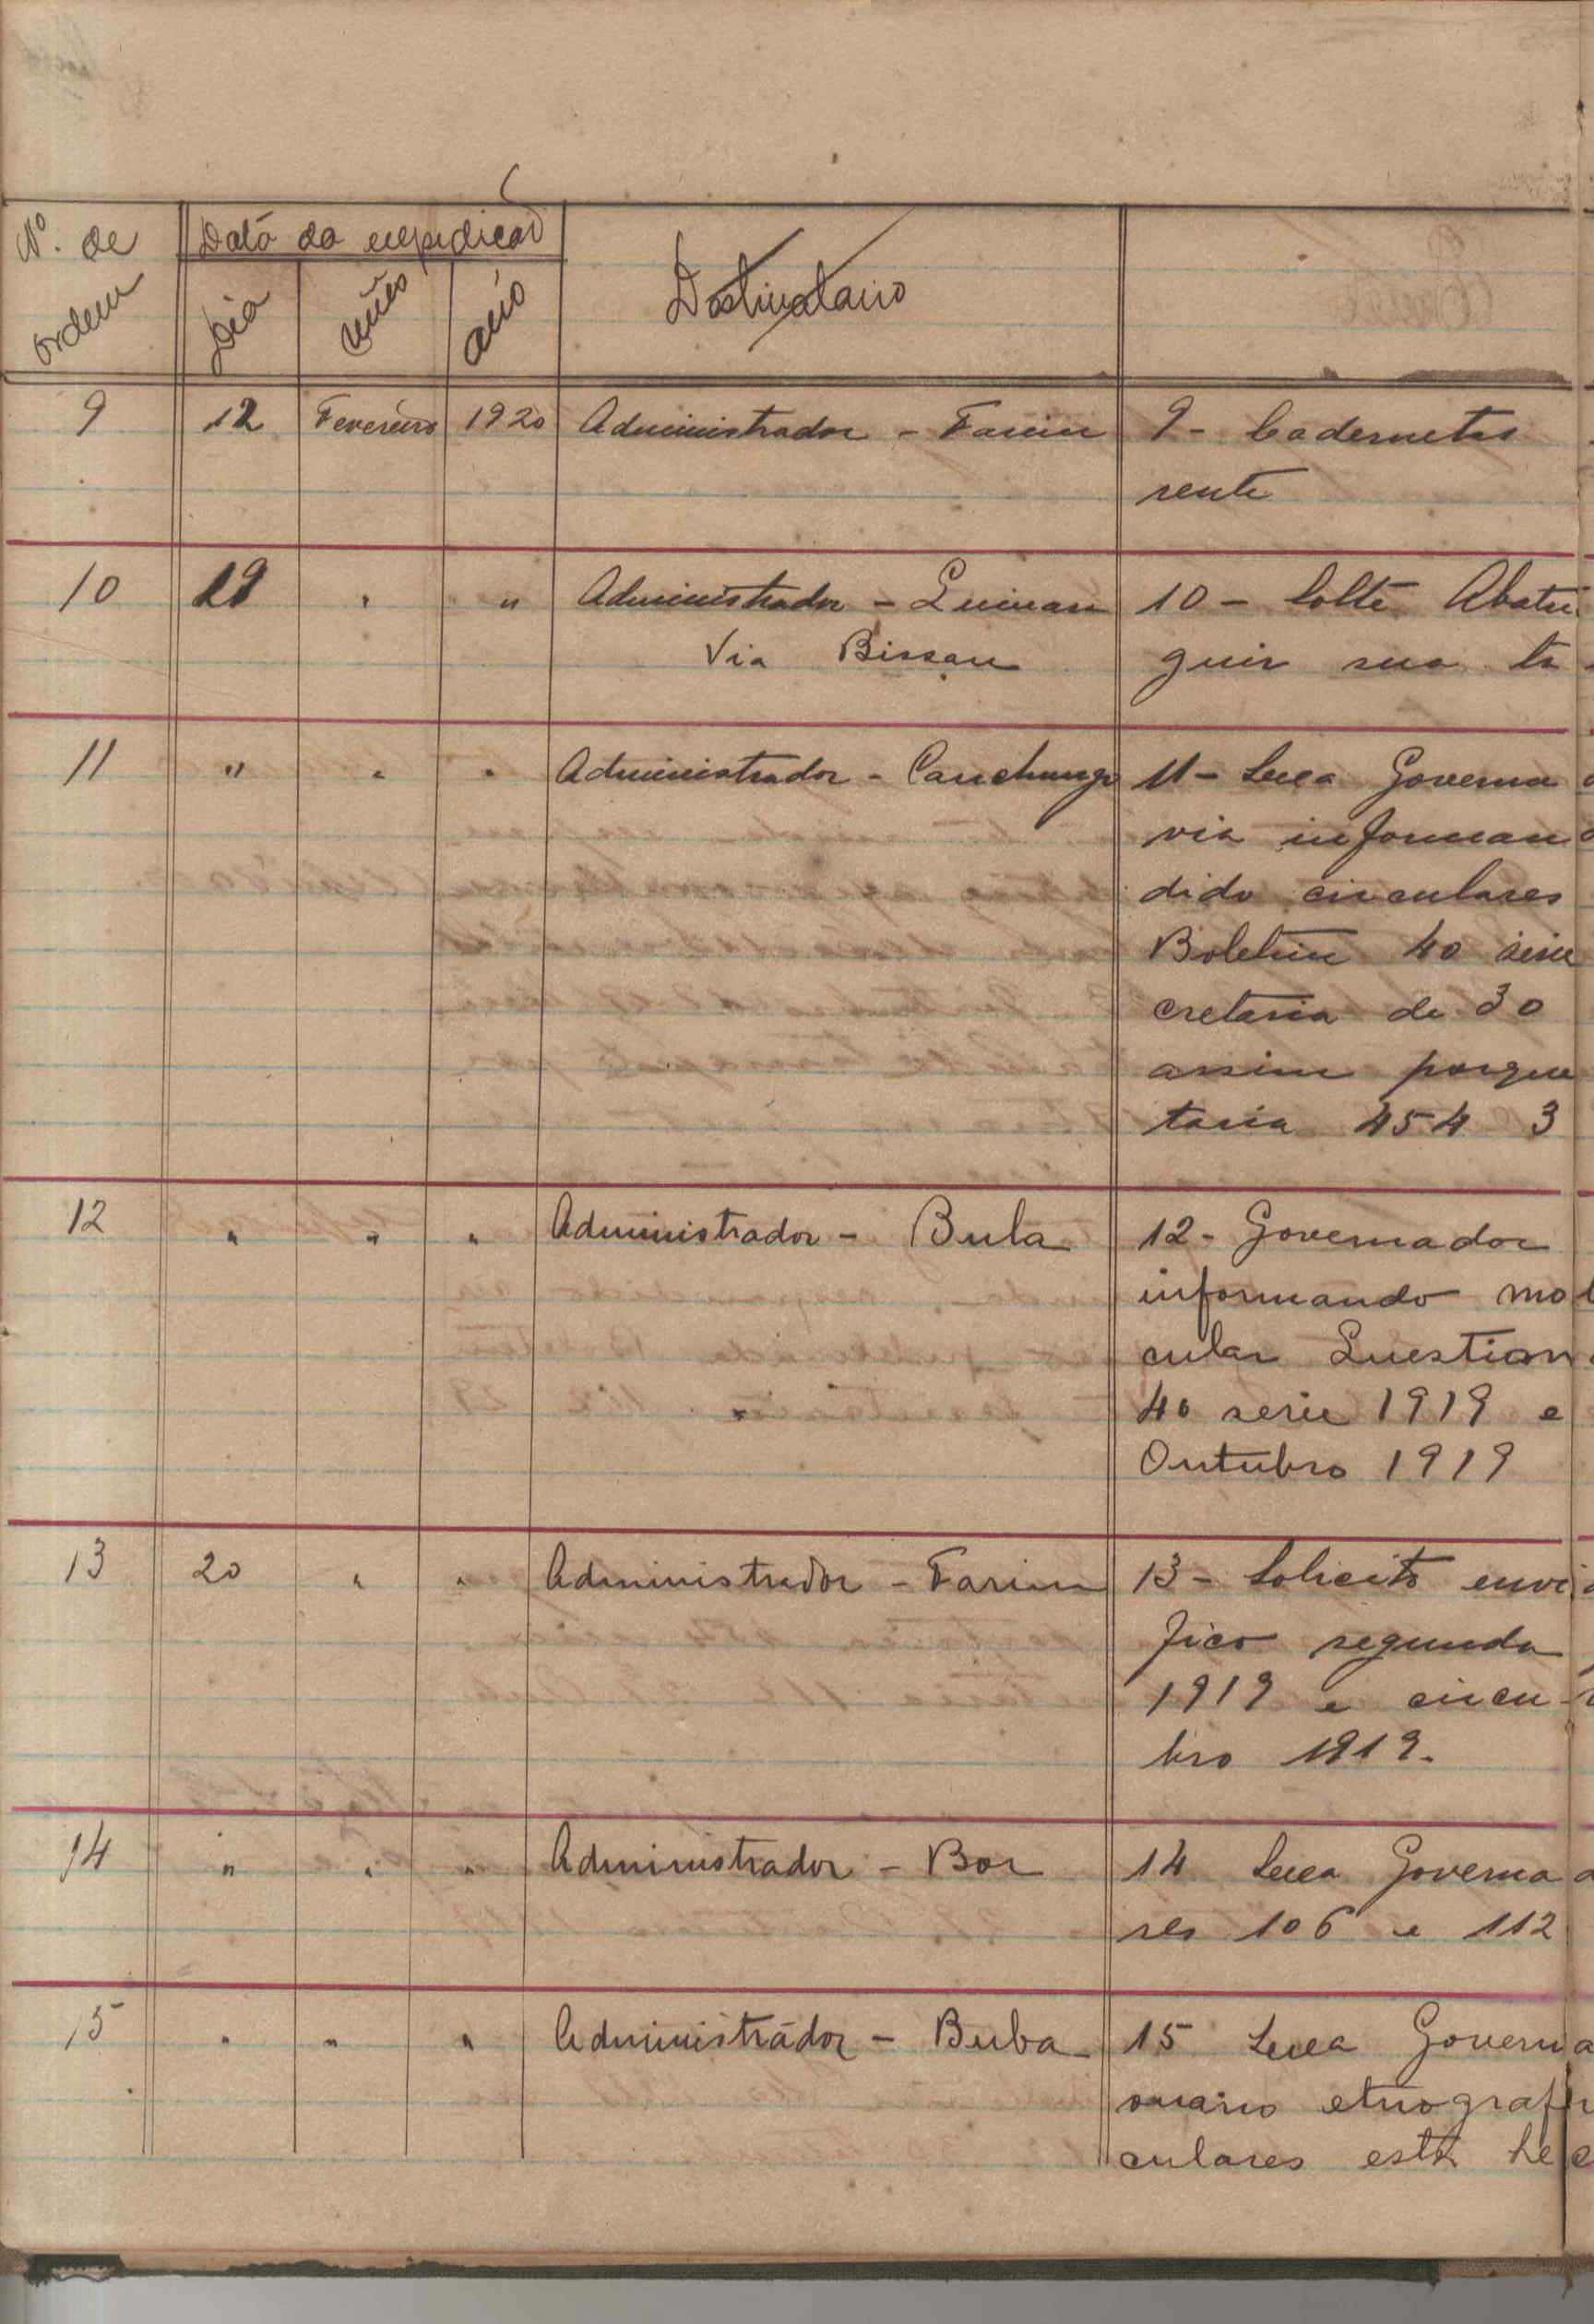 Nº. de ordem
Data da expedição
Dia mês ano
Destinatario
9 12 Fevereiro 1920 Administrador - Farim 9 - Cadernetas
rente
10 19 " " Administrador - Quinara 10 - Solte
Via Bissau guir sua ta
11 " " " Administrador - Canchungo 11 - Governa
via informan
dido circulares
Boletim 40 serie
cretaria de 30
assim porque
taria 454 3
12 " " " Administrador - Bula 12 - Governador
informando mot
cular Question
40 serie 1919 e
Outubro 1919
13 20 " " Administrador - Farim 13 - Solicito envi
fico segunda
1919 e circu
bro 1919.
14 " " " Administrador - Bor 14 Governa
res 106 e 112
15 " " " Administrador - Buba 15 Governa
onario etnografi
culares esta